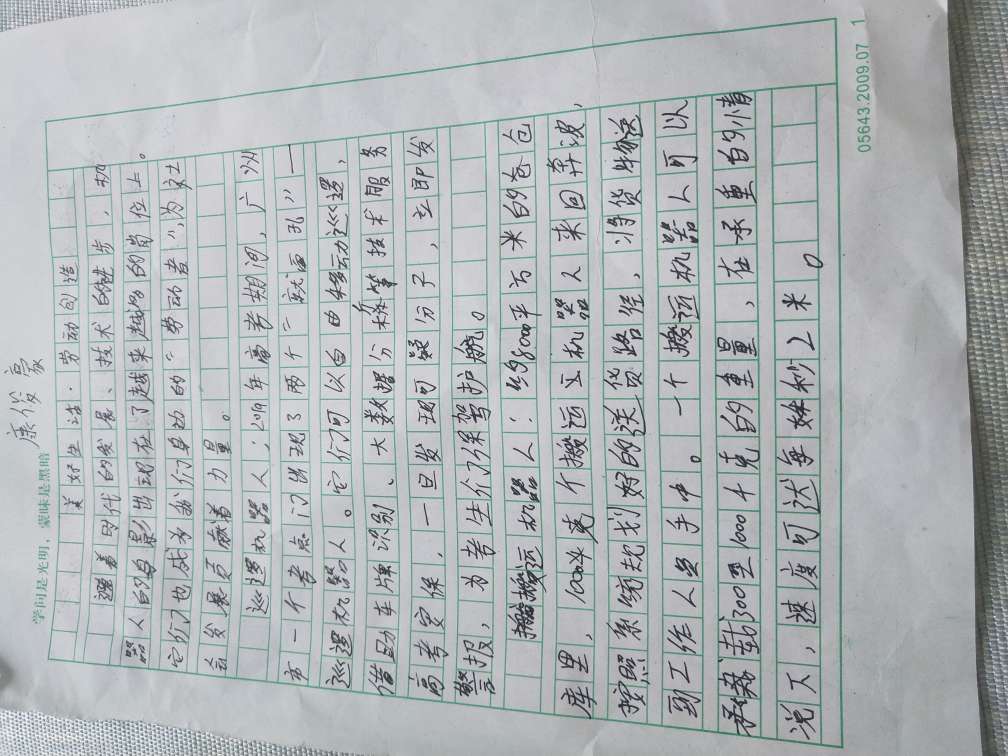 学问是光明，蒙昧是黑暗
康俊豪
美好生活·劳动创造
随着时代的发展、技术的进步，机
器人的身影出现在了越来越多的岗位上。
它们也成为我们身边的“劳动者”，为社
会发展贡献着力量。
巡逻机器人：2019年高考期间，广州
市一个考点门出现了两个“新面孔”——
巡逻机器人。它们可以自由移动巡逻，
借助车牌识别、大数据分析等技术服务
高考安保，一旦发现可疑分子，立即发
警报，为考生们保驾护航。
搬运机器人：约8000平方米的仓
库里，100多个搬运立机器人来回奔波，
按照系统规划好的送货路径，将货物送
到工作人员手中。一个搬运机器人可以
承载300至1000千克的重量，在承重的情
况下，速度可达每秒2米。
05643.2009.07 1